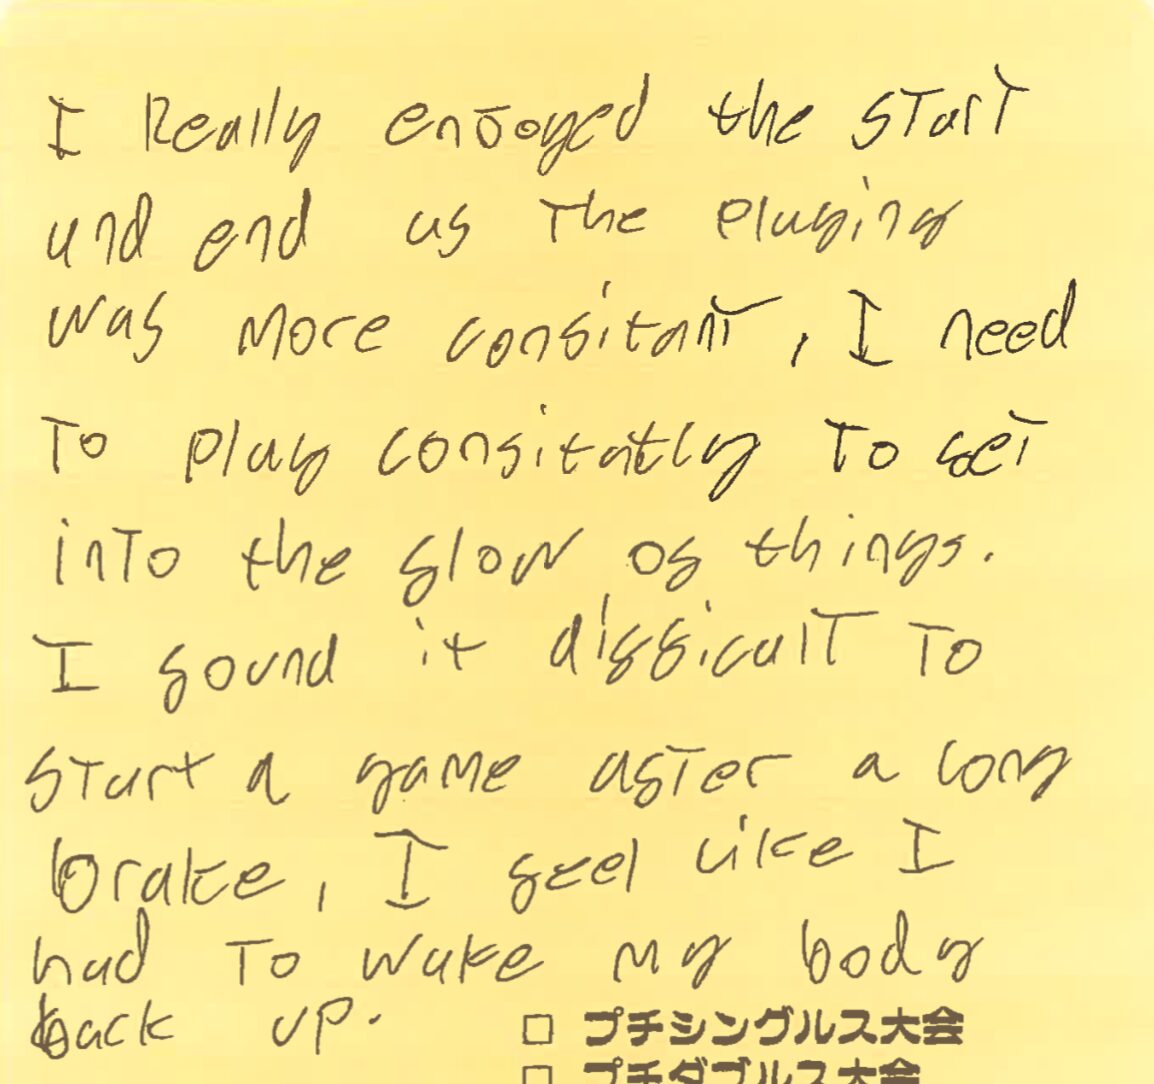 I Really enjoyed the start
and end as the playing
was more consitant, I need
To play consitatly To get
into the flow of things.
I found it difficult To
start a game after a long
brake, I feel like I
had To wake my body
back up.
□ プチシングルス大会
□ プチダブルス大会